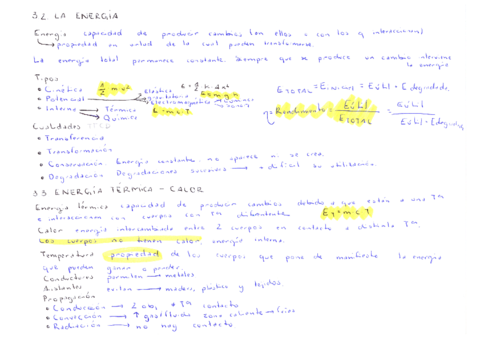 3.2 LA ENERGÍA
Energía capacidad de producir cambios (en ellos o con los q interaccionan)
propiedad en virtud de la cual pueden transformarse.
La energía total permanece constante. Siempre que se produce un cambio interviene la energía
Tipos
• Cinética 1/2 m·v²
• Potencial elástica E = 1/2 k·Δx²
gravitatoria E = m·g·h
electromagnética
• Interna Térmica E = m·c·T
Química
E TOTAL = E INICIAL = E útil + E degradada
η Rendimiento = E útil / E TOTAL = E útil / E útil + E degradada
Cualidades
• Transferencia
• Transformación
• Conservación Energía constante, no aparece ni se crea.
• Degradación Degradaciones sucesivas → + difícil su utilización.
3.3 ENERGÍA TÉRMICA - CALOR
Energía Térmica capacidad de producir cambios debido a que están a una Tª
e interaccionan con cuerpos con Tª diferente E = m c T
Calor energía intercambiada entre 2 cuerpos en contacto a distinta Tª
Los cuerpos no tienen calor, energía interna.
Temperatura propiedad de los cuerpos que pone de manifiesto la energía
que pueden ganar o perder.
Conductores permiten → metales
Aislantes evitan → madera, plástico y tejidos.
Propagación
• Conducción → 2 obj ≠ Tª contacto
• Convección → fluido zona caliente → fría
• Radiación → no hay contacto